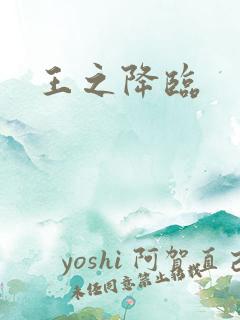 王之降臨
yoshi 阿賀直己
未経同意禁止転載